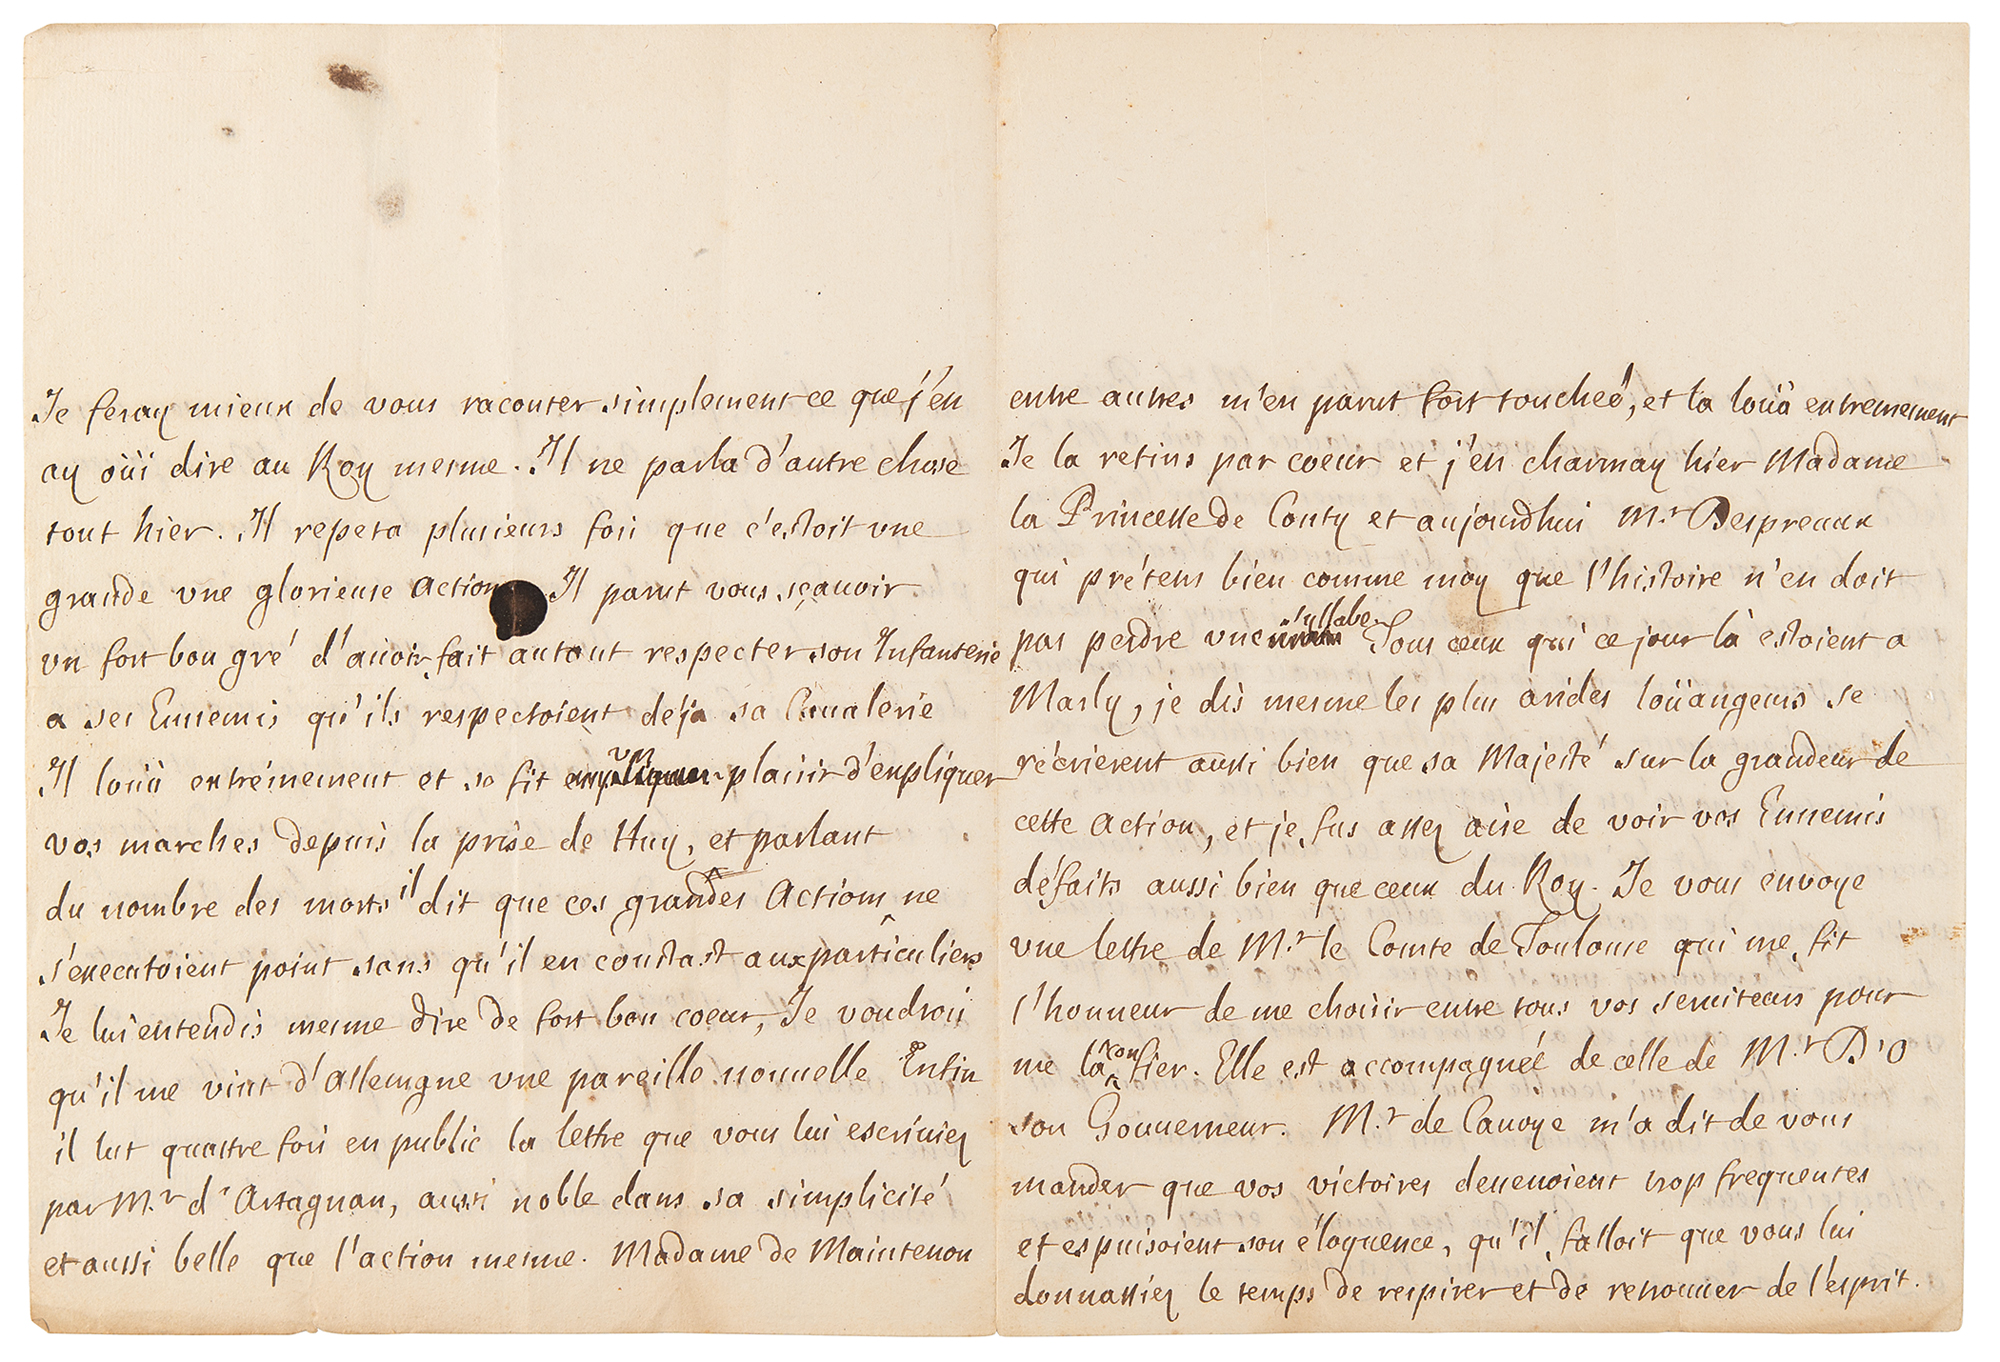 Je feray mieux de vous raconter simplement ce que j'en
ay oüi dire au Roy mesme. Il ne parla d'autre chose
tout hier. Il repeta plusieurs fois que c'estoit vne
grande vne glorieuse action Il parut vous sçauoir
vn fort bon gré d'auoir fait autant respecter son Infanterie
a ses Ennemis qu'ils respectoient déja sa Caualerie
Il loüa extrémement et se fit vn plaisir d'expliquer
vos marches depuis la prise de Huy, et parlant
du nombre des morts il dit que ces grandes Actions ne
s'executoient point sans qu'il en coustast aux particuliers
Je lui entendis mesme dire de fort bon coeur, Je voudrois
qu'il me vint d'Allemagne vne pareille nouuelle Enfin
il lut quattre fois en public la lettre que vous lui escriuiez
par M.r d'Artagnan, aussi noble dans sa simplicité
et aussi belle que l'action mesme. Madame de Maintenon
entre autres m'en parut fort toucheé, et la loüa extremement
Je la retins par coeur et j'en charmay hier Madame
la Princesse de Conty et aujourdhui M.r Despreaux
qui prétens bien comme moy que l'histoire n'en doit
pas perdre vne syllabe. Tous ceux qui ce jour là estoient a
Marly, je dis mesme les plus arides loüangeurs se
récrierent aussi bien que sa Majesté sur la grandeur de
cette action, et je fus assez aise de voir vos Ennemis
défaits aussi bien que ceux du Roy. Je vous envoye
vne lettre de M.r le Comte de Toulouse qui me fit
l'honneur de me choisir entre tous vos seruiteurs pour
me la confier. Elle est accompagneé de celle de M.r D'O
son Gouuerneur. M.r de Cauoye m'a dit de vous
mander que vos victoires deuenoient trop frequentes
et espuisoient son éloquence, qu'il falloit que vous lui
donnassiez le temps de respirer et de retrouuer de l'esprit.